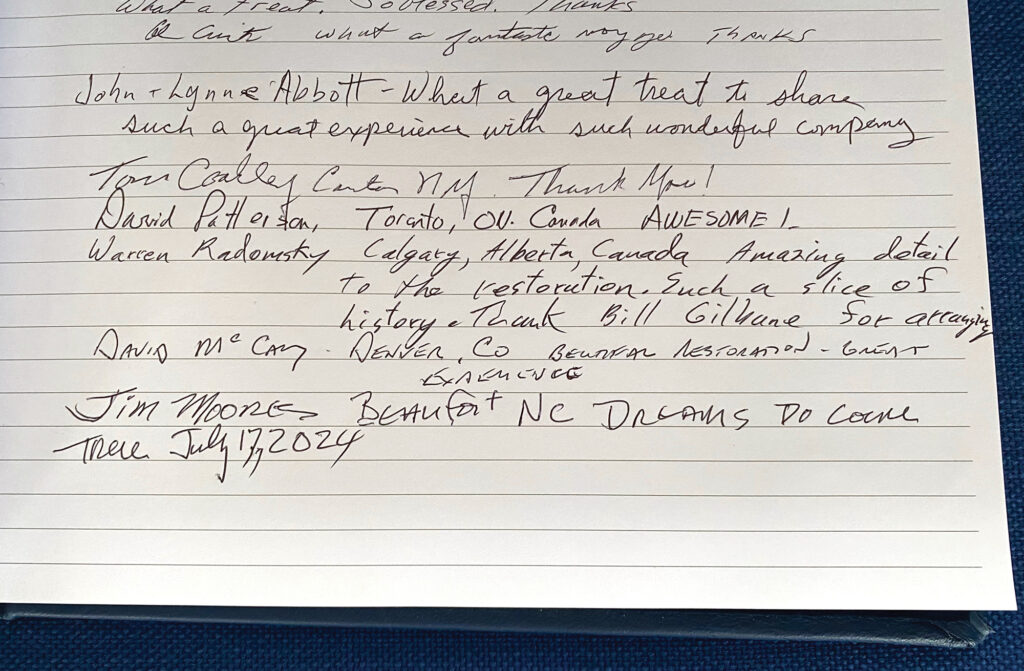 What a treat. So blessed. Thanks
what a fantastic voyage THANKS
John + Lynne Abbott - What a great treat to share
such a great experience with such wonderful company
Tom Coakley Canton NY. Thank You!
David Patterson, Toronto, ON. Canada AWESOME!
Warren Radomsky Calgary, Alberta, Canada Amazing detail
to the restoration. Such a slice of
history. Thank Bill Gilkane for arranging
DAVID McCAY - DENVER, CO BEUTIFUL RESTORATION - GREAT
EXPERIENCE
JIM MOORES BEAUFORT NC DREAMS DO COME
TRUE July 17, 2024